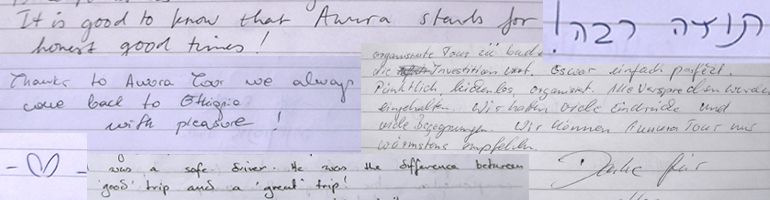 It is good to know that Awura stands for
honest good times!
Thanks to Awora Tour we always
come back to Ethiopia
with pleasure !
תודה רבה!
organisierte Tour zu
die Investition wert. war einfach perfekt.
Pünktlich, organisiert. Alle Versprechen wurden
eingehalten. Wir haben viele Eindrücke und
viele Begegnungen. Wir können Tour nur
wärmstens empfehlen.
Danke für
was a safe driver. He was the difference between
'good' trip and a 'great' trip!